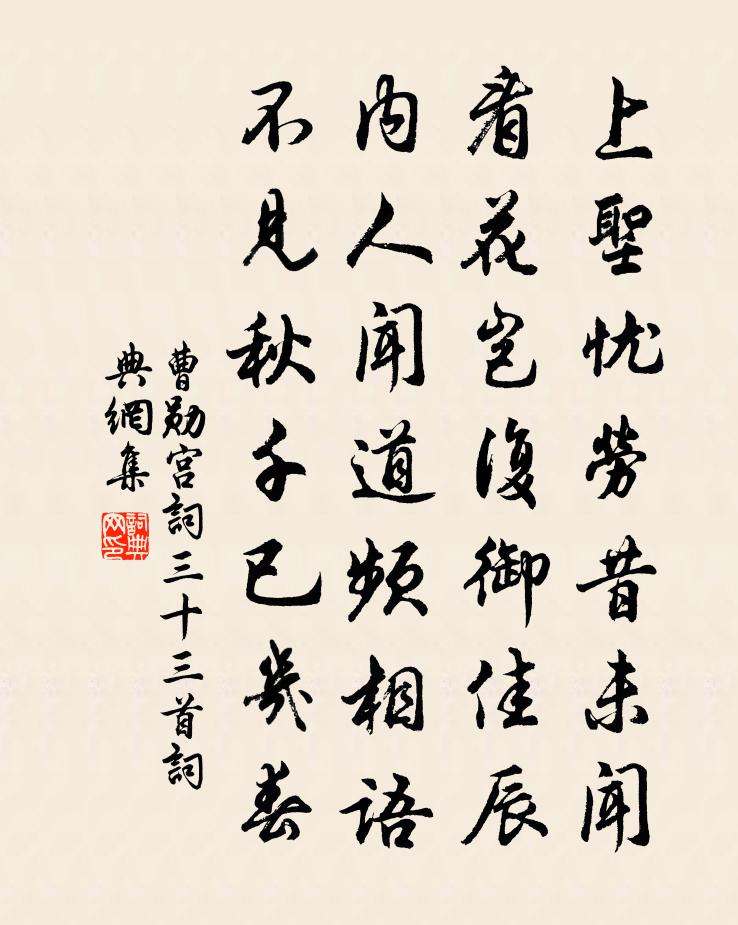 上聖忧勞昔未闻
看花岂復御佳辰
内人闻道频相語
不見秋千已幾春
曹勋宫詞三十三首詞
典網集
詞典网印